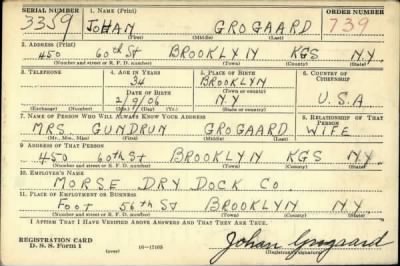 SERIAL NUMBER 1. NAME (Print) ORDER NUMBER
3359 JOHAN GROGAARD 739
(First) (Middle) (Last)
2. ADDRESS (Print)
450 60th St BROOKLYN KGS N.Y.
(Number and street or R. F. D. number) (Town) (County) (State)
3. TELEPHONE 4. AGE IN YEARS 5. PLACE OF BIRTH 6. COUNTRY OF CITIZENSHIP
34 BROOKLYN
DATE OF BIRTH (Town or county)
2/9/06 N.Y U.S.A
(Exchange) (Number) (Mo.) (Day) (Yr.) (State or country)
7. NAME OF PERSON WHO WILL ALWAYS KNOW YOUR ADDRESS 8. RELATIONSHIP OF THAT PERSON
MRS. GUNDRUN GROGAARD WIFE
(Mr., Mrs., Miss) (First) (Middle) (Last)
9. ADDRESS OF THAT PERSON
450 60th St BROOKLYN KGS N.Y.
(Number and street or R. F. D. number) (Town) (County) (State)
10. EMPLOYER'S NAME
MORSE DRY DOCK Co
11. PLACE OF EMPLOYMENT OR BUSINESS
FOOT 56th St BROOKLYN N.Y.
(Number and street or R. F. D. number) (Town) (County) (State)
I AFFIRM THAT I HAVE VERIFIED ABOVE ANSWERS AND THAT THEY ARE TRUE.
REGISTRATION CARD
D. S. S. Form 1 (over) 16—17105 Johan Grogaard
(Registrant's signature)